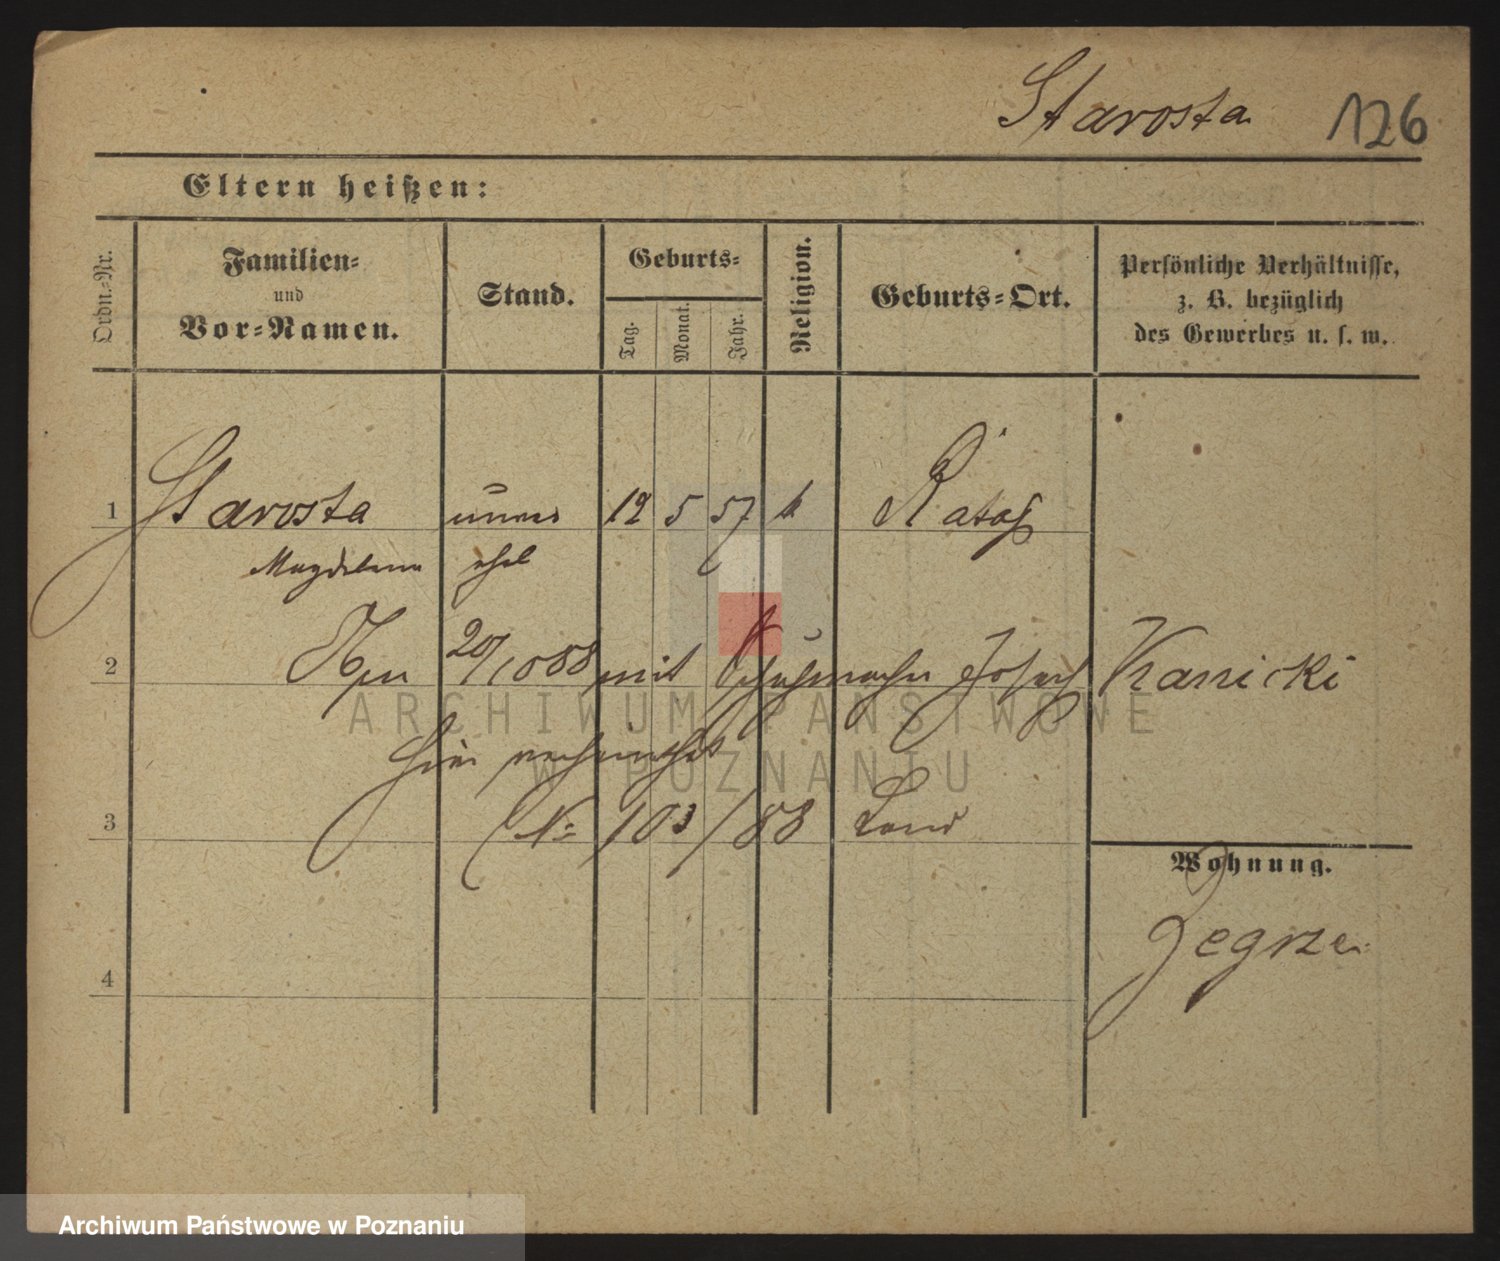 Starosta 126
Eltern heißen:
Ordn.-Nr.
Familien-
und
Vor-Namen.
Stand.
Geburts-
Tag.
Monat.
Jahr.
Religion.
Geburts-Ort.
Persönliche Verhältnisse,
z. B. bezüglich
des Gewerbes u. s. w.
1 Starosta unver 12 5 57 k Rataj
Magdalena ehel
2 20/1 88 mit Schuhmacher Josef Kanicki
hier verheirathet
3 No 103/88 Land
Wohnung.
Zegrze
4
ARCHIWUM PAŃSTWOWE
W POZNANIU
Archiwum Państwowe w Poznaniu